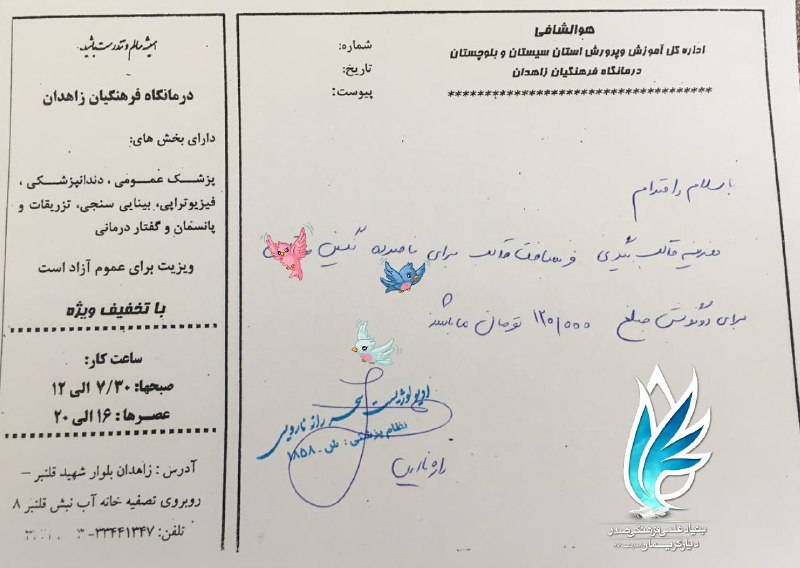 هوالشافی
اداره کل آموزش وپرورش استان سیستان و بلوچستان
درمانگاه فرهنگیان زاهدان
************************************
شماره:
تاریخ:
پیوست:
با سلام و احترام
هزینه قالب گیری و ساخت قالب برای
برای دو گوش مبلغ ۱۲۰/۰۰۰ تومان می باشد
ادیولوژیست سحر راز نارویی
نظام پزشکی: ش-۱۸۵۸
بنیاد علمی فرهنگی صدر
دیار کریمان
همیشه سالم و تندرست باشید
درمانگاه فرهنگیان زاهدان
دارای بخش های:
پزشک عمومی ، دندانپزشکی ،
فیزیوتراپی، بینایی سنجی، تزریقات و
پانسمان و گفتار درمانی
ویزیت برای عموم آزاد است
با تخفیف ویژه
ساعت کار:
صبحها: ۷/۳۰ الی ۱۲
عصرها : ۱۶ الی ۲۰
آدرس : زاهدان بلوار شهید قلنبر –
روبروی تصفیه خانه آب نبش قلنبر ۸
تلفن: ۳۳۴۴۱۳۴۷-